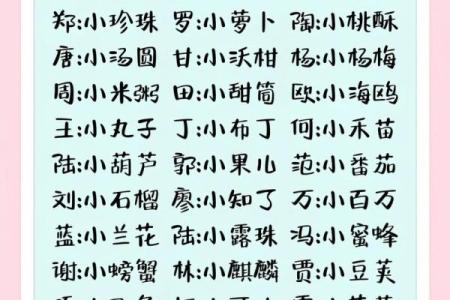 郑:小珍珠 罗:小萝卜 陶:小桃酥
唐:小汤圆 甘:小沃柑 杨:小杨梅
周:小米粥 田:小甜筒 欧:小海鸥
王:小丸子 丁:小布丁 何:小禾苗
陆:小葫芦 郭:小果儿 范:小番茄
刘:小石榴 廖:小知了 万:小百万
蓝:小兰花 陆:小露珠 冯:小蜜蜂
谢:小螃蟹 林:小麒麟 贾:小豆荚